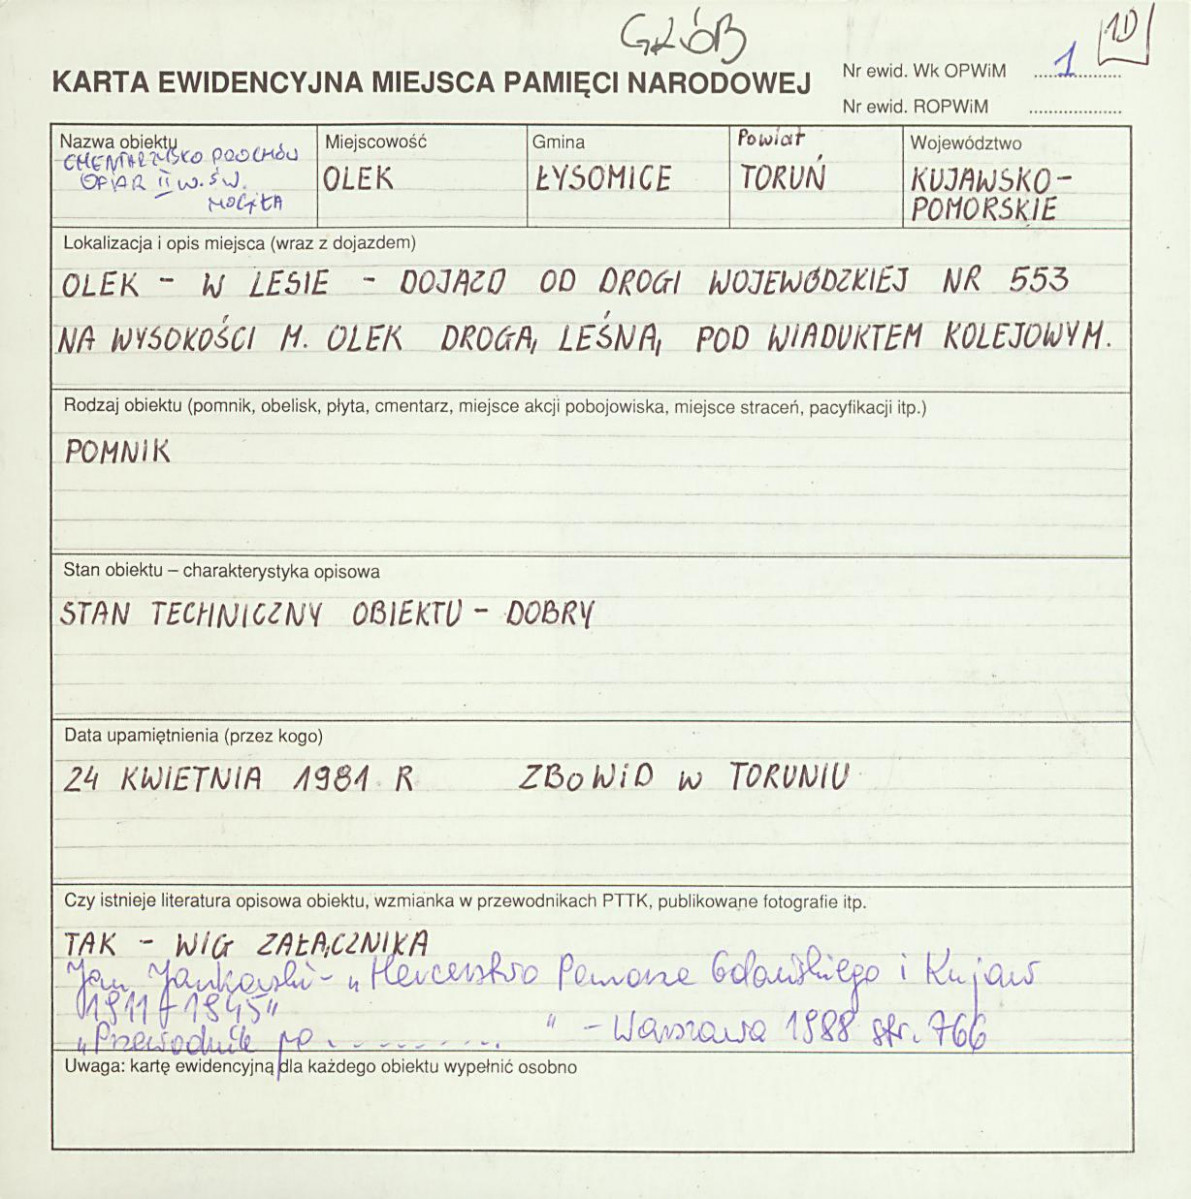 GRÓB
1D
KARTA EWIDENCYJNA MIEJSCA PAMIĘCI NARODOWEJ
Nr ewid. Wk OPWiM 1
Nr ewid. ROPWiM ....................
Nazwa obiektu
CMENTARZYSKO PROCHÓW
OFIAR II W. ŚW.
MOGIŁA
Miejscowość
OLEK
Gmina
ŁYSOMICE
Powiat
TORUŃ
Województwo
KUJAWSKO-
POMORSKIE
Lokalizacja i opis miejsca (wraz z dojazdem)
OLEK - W LESIE - DOJAZD OD DROGI WOJEWÓDZKIEJ NR 553
NA WYSOKOŚCI M. OLEK DROGĄ LEŚNĄ POD WIADUKTEM KOLEJOWYM.
Rodzaj obiektu (pomnik, obelisk, płyta, cmentarz, miejsce akcji pobojowiska, miejsce straceń, pacyfikacji itp.)
POMNIK
Stan obiektu – charakterystyka opisowa
STAN TECHNICZNY OBIEKTU - DOBRY
Data upamiętnienia (przez kogo)
24 KWIETNIA 1981 R ZBOWiD W TORUNIU
Czy istnieje literatura opisowa obiektu, wzmianka w przewodnikach PTTK, publikowane fotografie itp.
TAK - WIG ZAŁĄCZNIKA
Jan Jankowski - „Harcerstwo Pomorza Gdańskiego i Kujaw
1911-1945"
„Przewodnik po .......... " - Warszawa 1988 str. 766
Uwaga: kartę ewidencyjną dla każdego obiektu wypełnić osobno